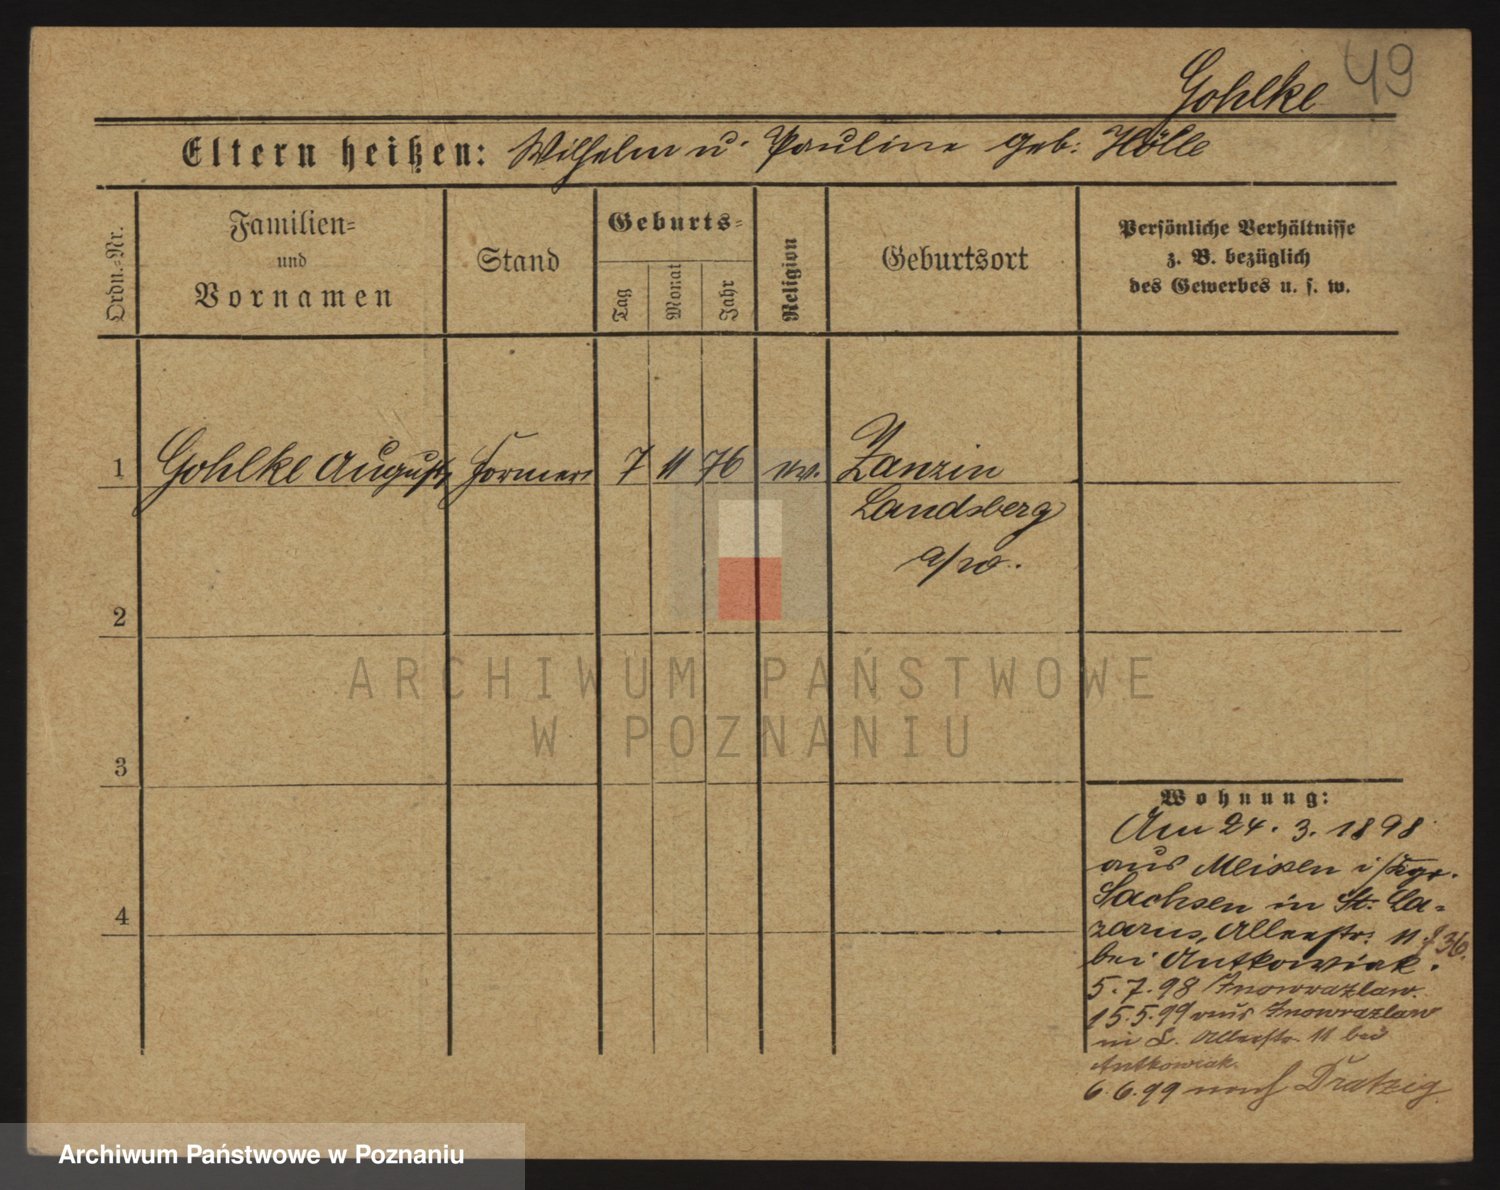 Gohlke 49
Eltern heißen: Wilhelm u. Pauline geb. Hölle
Ordn.-Nr.
Familien- und Vornamen
Stand
Geburts-
Tag
Monat
Jahr
Religion
Geburtsort
Persönliche Verhältnisse
z. B. bezüglich
des Gewerbes u. s. w.
1 Gohlke August, Former 7 11 76 ev. Zanzin
Landsberg
a/w.
2
3
4
Wohnung:
Am 24. 3. 1898
aus Meißen i/Kgr.
Sachsen in St. La-
zarus, Alleestr. 11 36.
bei Antkowiak.
5. 7. 98 Inowrazlaw.
15. 5. 99 aus Inowrazlaw
in L. Alleestr. 11 bei
Antkowiak.
6. 6. 99 nach Dratzig.
ARCHIWUM PAŃSTWOWE
W POZNANIU
Archiwum Państwowe w Poznaniu